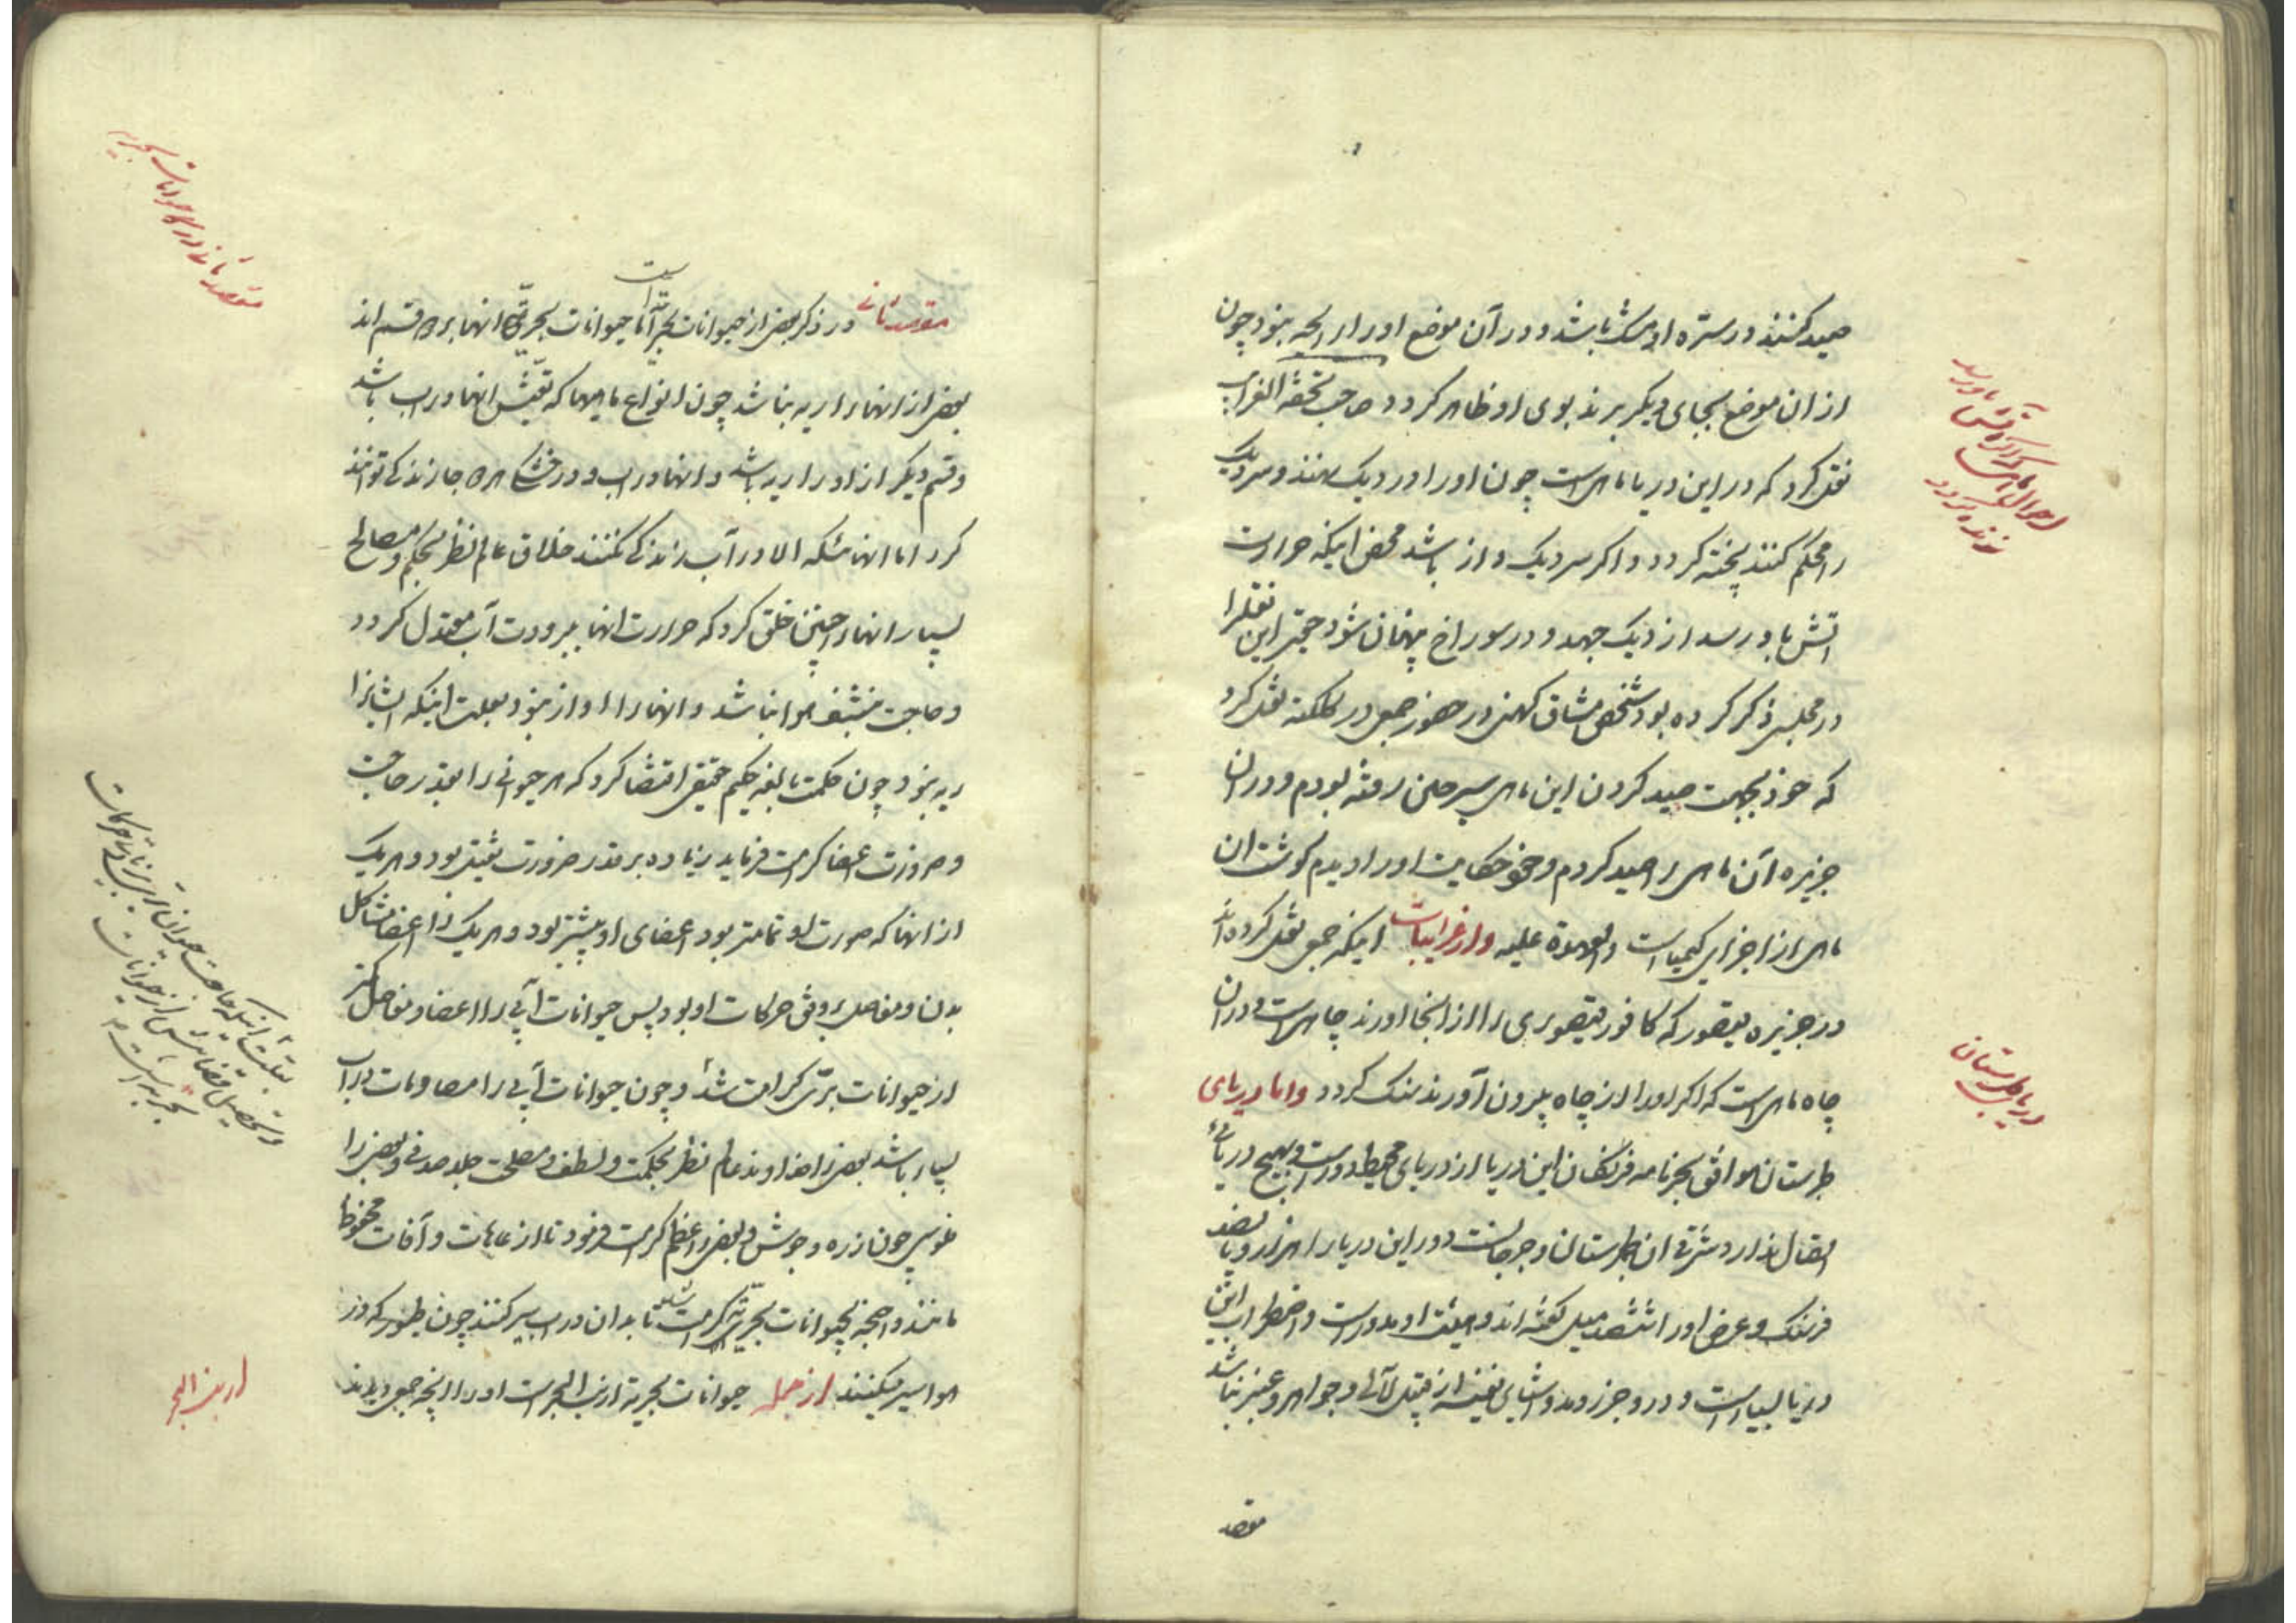 صید کنند در سرّه او مشک باشد و در آن موضع او را رایحه نبود چون
از ان موضع بجای دیگر برند بوی او ظاهر کردد صاحب تحفة الغرایب
نقل کرد که در این دریا ماهی است چون او را در دیک نهند و سر دیک
را محکم کنند پخته کردد و اکر سر دیک واز باشد محض اینکه حرارت
اتش باو رسد از دیک جهد و در سوراخ پنهان شود این نقلرا
در مجلسی ذکر کرده بود شخصی مشاق کهنی در حضور جمعی در کلکته نقل کرد
که خود بجهت صید کردن این ماهی بسر حلی رفته بودم و در ان
جزیره آن ماهی را صید کردم و حکایت او را دیدم کوشت ان
ماهی از اجزای کیمیاست والعهدة علیه و از غرایبات اینکه جمعی نقل کرده اند
در جزیره فیصور که کافور فیصوری را از انجا اورند چاهی است و در ان
چاه ماهی است که اکر او را از چاه بیرون آورند سنک کردد واما دریای
طبرستان موافق بحر نامه فرنکان این دریا از دریای محیط دور است و بهیچ دریائی
اتصال ندارد شرقی ان طبرستان و جرجانست دور این دریا را هزار و پانصد
فرسنک و عرض او را ششصد میل کفته اند و هیئت او مدور است و اضطراب این
دریا بسیار است و در او جزر و مد و اشیای نفیسه از قبیل لآلی و جواهر و عنبر نباشد
مقصد
احوال ماهی که اکر آتش باو رسد
زنده کردد
دریای طبرستان
مقصد ثانی در ذکر بعضی از حیوانات بحر است اما حیوانات بحریّه انها بر دو قسم اند
بعضی از انها را ریه نباشد چون انواع ماهیها که تعیّش انها در اب باشد
و قسم دیکر از او را ریه باشد و انها در اب و در خشکی هر دو جا زندکی توانند
کرد اما انهائیکه الا در آب زندکی نکنند خلاق عالم نظر بحکم و مصالح
بسیار انها را چنین خلق کرد که حرارت انها ببرودت آب معتدل کردد
و حاجت بتنشف هوا نباشد و انها را اواز نبود بعلت اینکه ایشانرا
ریه نبود چون حکمت بالغه حکیم حقیقی اقتضا کرد که هر حیوانی را بقدر حاجت
و ضرورت اعضا کرامت فرماید زیاده بر قدر ضرورت نبود و هر یک
از انها که صورت او تمامتر بود اعضای او بیشتر بود و هر یک را اعضا مشاکل
بدن و مفاصل بر وفق حرکات او بود پس حیوانات آبی را اعضا و مفاصل کمتر
از حیوانات برّی کرامت شد و چون حیوانات آبی را مصادمات در اب
بسیار باشد بعضی را خداوند عالم نظر بحکمت و لطف و مصلحت جلد صدفی و بعضی را
فلوسی چون زره و جوشن و بعضی را عظم کرامت فرمود تا از عاهات و آفات محفوظ
مانند و اجنحه بحیوانات بحریّه کرامت شد تا بدان در اب سیر کنند چون طیور که در
هوا سیر میکنند از جمله حیوانات بحریة ارنب البحر است او را انچه جمعی دیدند
مقصد ثانی در ذکر حیوانات بحریه
بعلت اینکه حاجت حیوان برّی زیاد در حرکات
و تحصیل از حیوانات
بحریه است
ارنب البحر